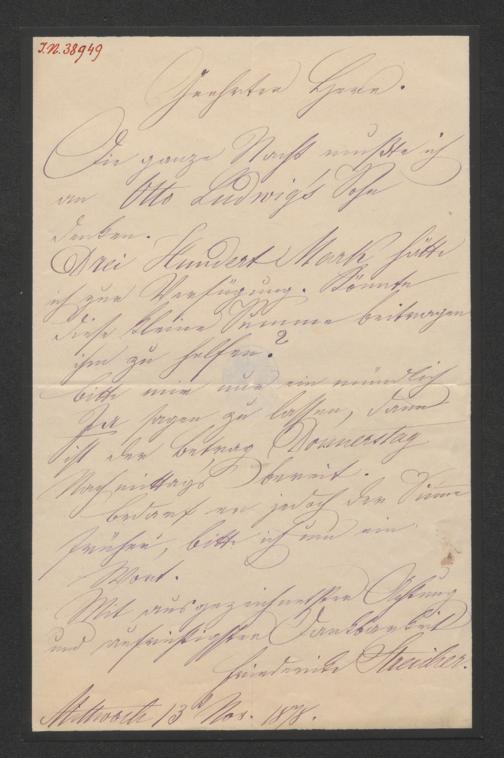 I.N. 38949
Geehrter Herr.
Die ganze Nacht mußte ich
an Otto Ludwigs Sohn
denken.
Drei Hundert Mark hätte
ich zur Verfügung. Könnte
diese kleine Summe beitragen
ihm zu helfen?
bitte mir nur ein mündlich
Ja sagen zu lassen, dann
ist der betrag Donnerstag
Nachmittags bereit.
bedarf er jedoch der Summe
früher, bitte ich um ein
Wort.
Mit ausgezeichnetster Achtung
und aufrichtigster Dankbarkeit
Friederike Streicher.
Mittwoch 13 Nov. 1878.